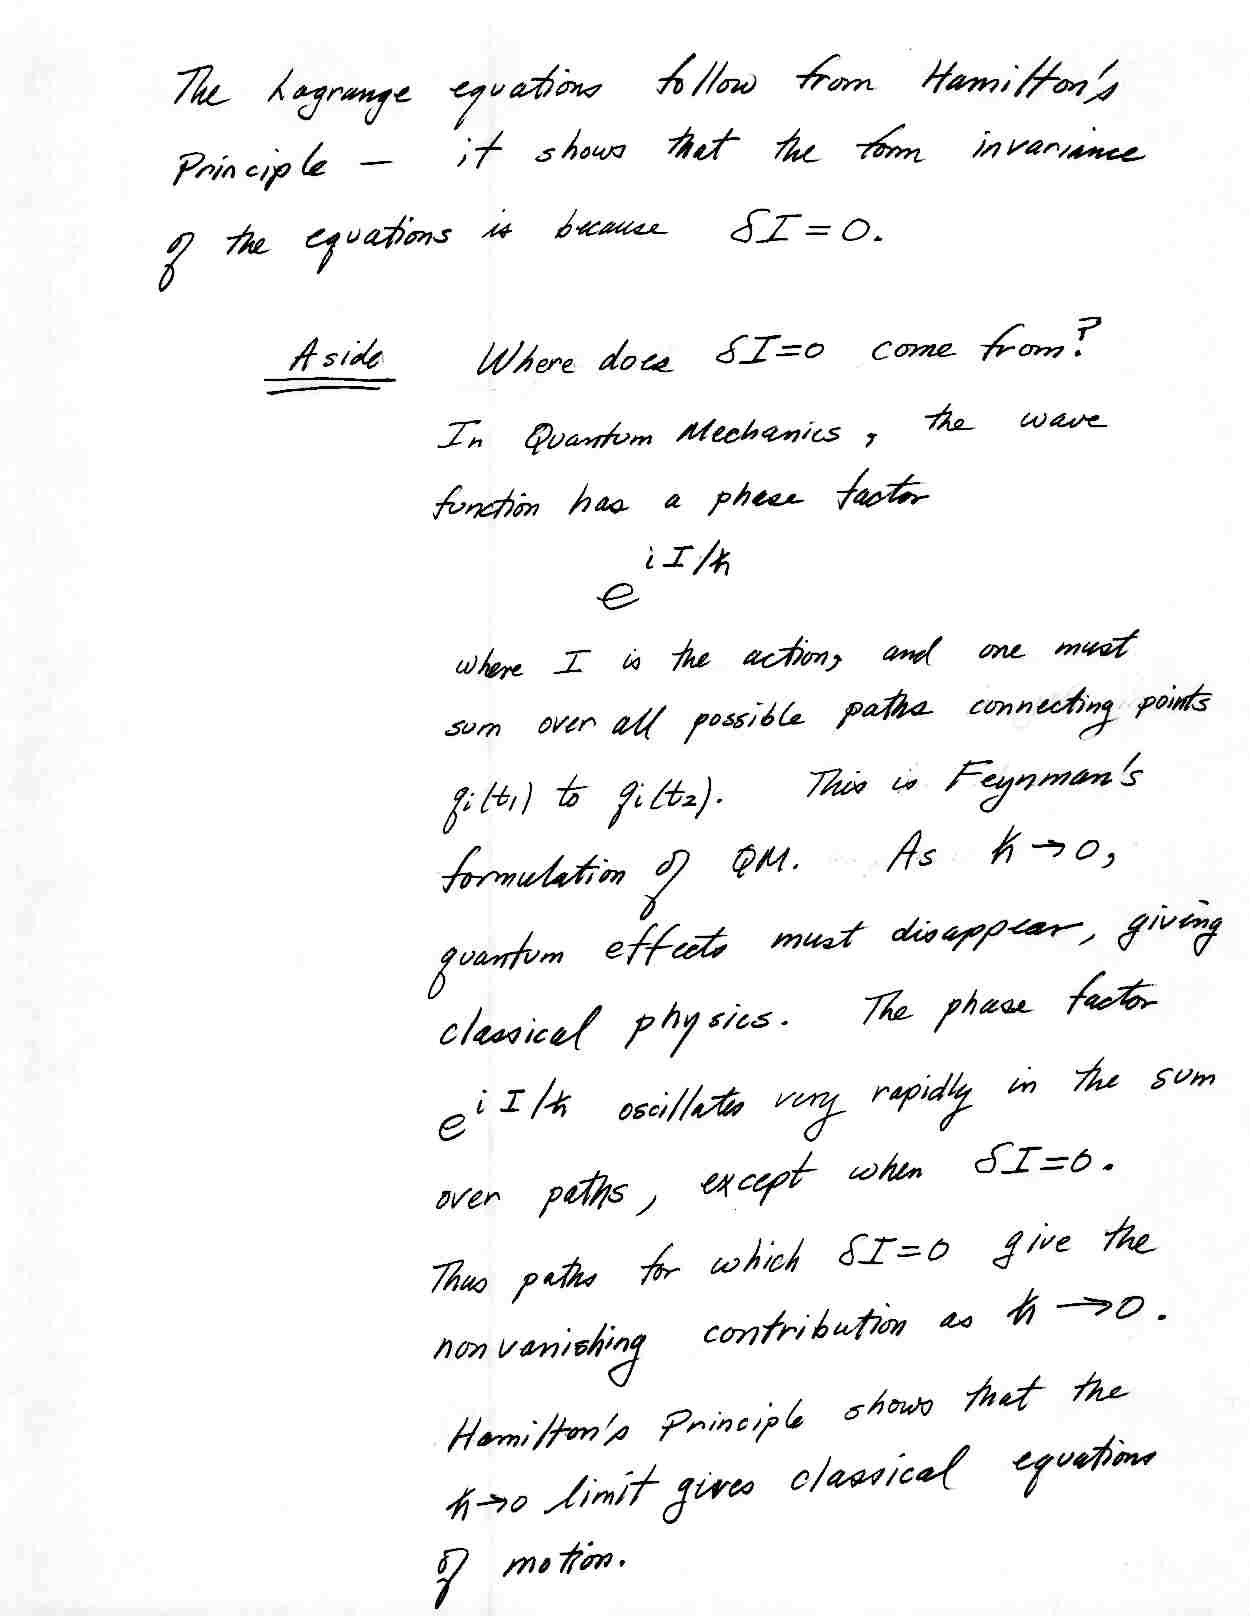 The Lagrange equations follow from Hamilton's
Principle — it shows that the form invariance
of the equations is because δI = 0.
Aside Where does δI=0 come from?
In Quantum Mechanics, the wave
function has a phase factor
e^{iI/ħ}
where I is the action, and one must
sum over all possible paths connecting points
qi(t1) to qi(t2). This is Feynman's
formulation of QM. As ħ→0,
quantum effects must disappear, giving
classical physics. The phase factor
e^{iI/ħ} oscillates very rapidly in the sum
over paths, except when δI=0.
Thus paths for which δI=0 give the
nonvanishing contribution as ħ→0.
Hamilton's Principle shows that the
ħ→0 limit gives classical equations
of motion.